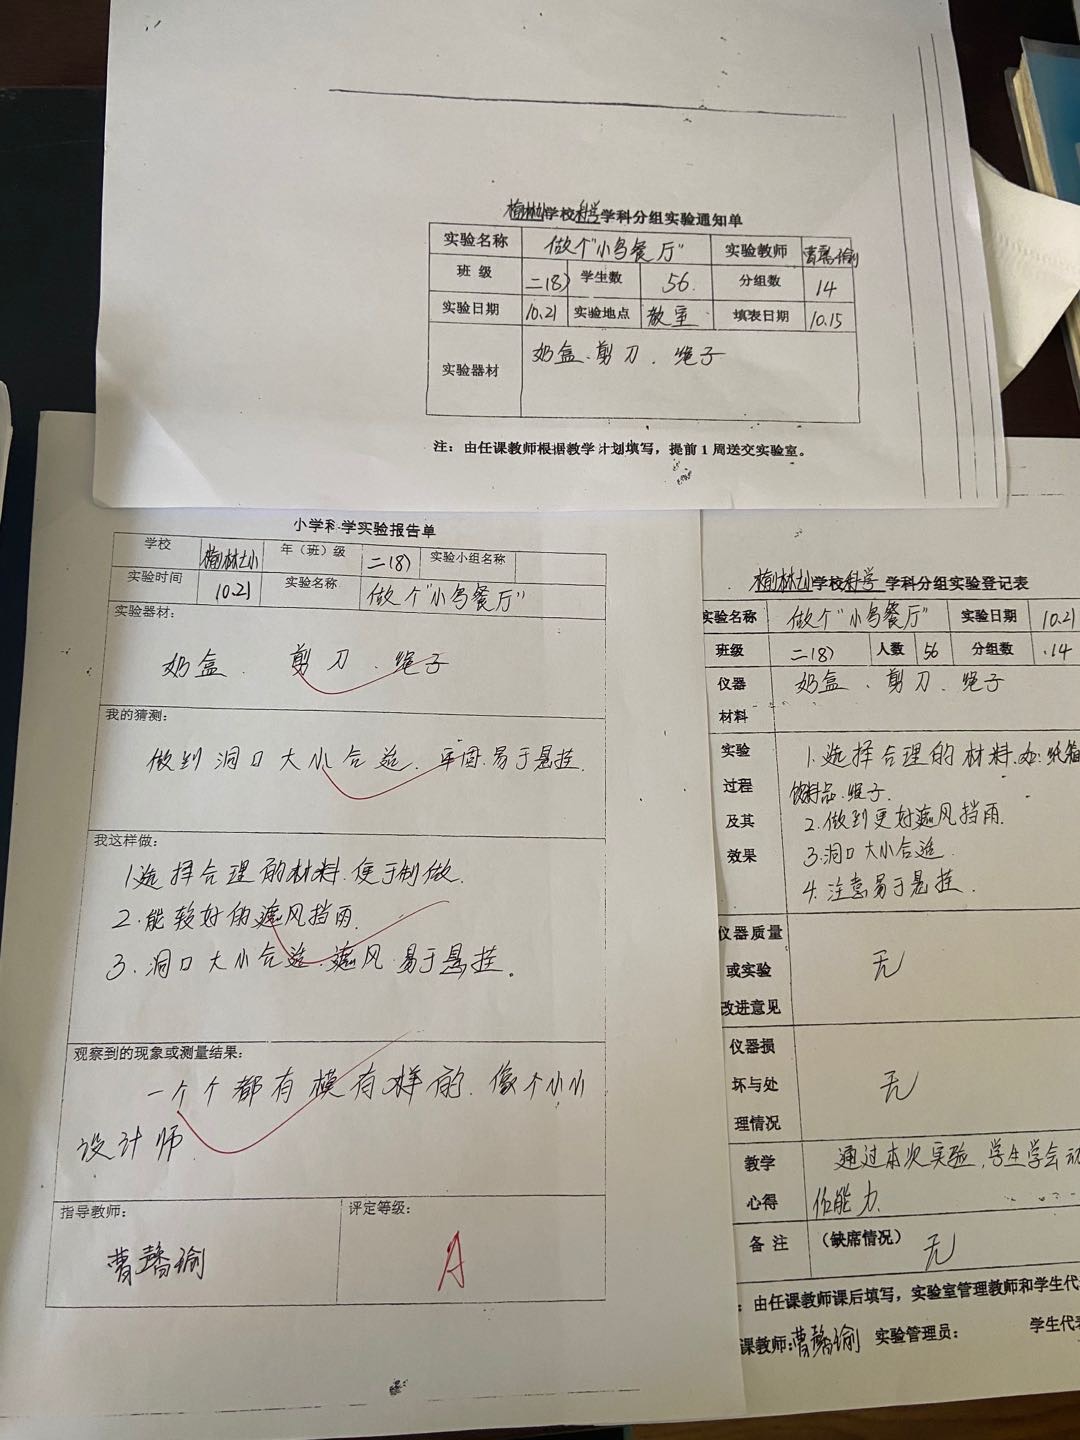 榆林小学校科学学科分组实验通知单
实验名称 做个"小鸟餐厅" 实验教师 曹馨瑜
班 级 二(8) 学生数 56. 分组数 14
实验日期 10.21 实验地点 教室 填表日期 10.15
实验器材 奶盒、剪刀、绳子
注：由任课教师根据教学计划填写，提前1周送交实验室。
小学科学实验报告单
学校 榆林小 年（班）级 二(8) 实验小组名称
实验时间 10.21 实验名称 做个"小鸟餐厅"
实验器材：
奶盒、剪刀、绳子
我的猜测：
做到洞口大小合适、牢固、易于悬挂.
我这样做：
1.选择合理的材料.便于制做.
2.能较好的遮风挡雨.
3.洞口大小合适.遮风.易于悬挂.
观察到的现象或测量结果：
一个个都有模有样的.像个小小
设计师.
指导教师： 评定等级：
曹馨瑜 A
榆林小学校科学 学科分组实验登记表
实验名称 做个"小鸟餐厅" 实验日期 10.21
班级 二(8) 人数 56 分组数 14
仪器 奶盒、剪刀、绳子
材料
实验 1.选择合理的材料.如:纸箱
过程 饮料品.绳子.
及其 2.做到更好遮风挡雨.
效果 3.洞口大小合适.
4.注意易于悬挂.
仪器质量
或实验 无
改进意见
仪器损
坏与处 无
理情况
教学 通过本次实验,学生学会动
心得 作能力.
备 注 （缺席情况） 无
：由任课教师课后填写，实验室管理教师和学生代
课教师:曹馨瑜 实验管理员： 学生代表